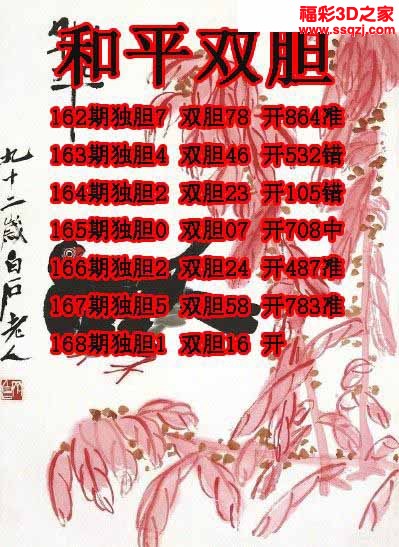 福彩3D之家
www.ssqzj.com
和平双胆
162期独胆7 双胆78 开864准
163期独胆4 双胆46 开532错
164期独胆2 双胆23 开105错
165期独胆0 双胆07 开708中
166期独胆2 双胆24 开487准
167期独胆5 双胆58 开783准
168期独胆1 双胆16 开
九十二岁白石老人